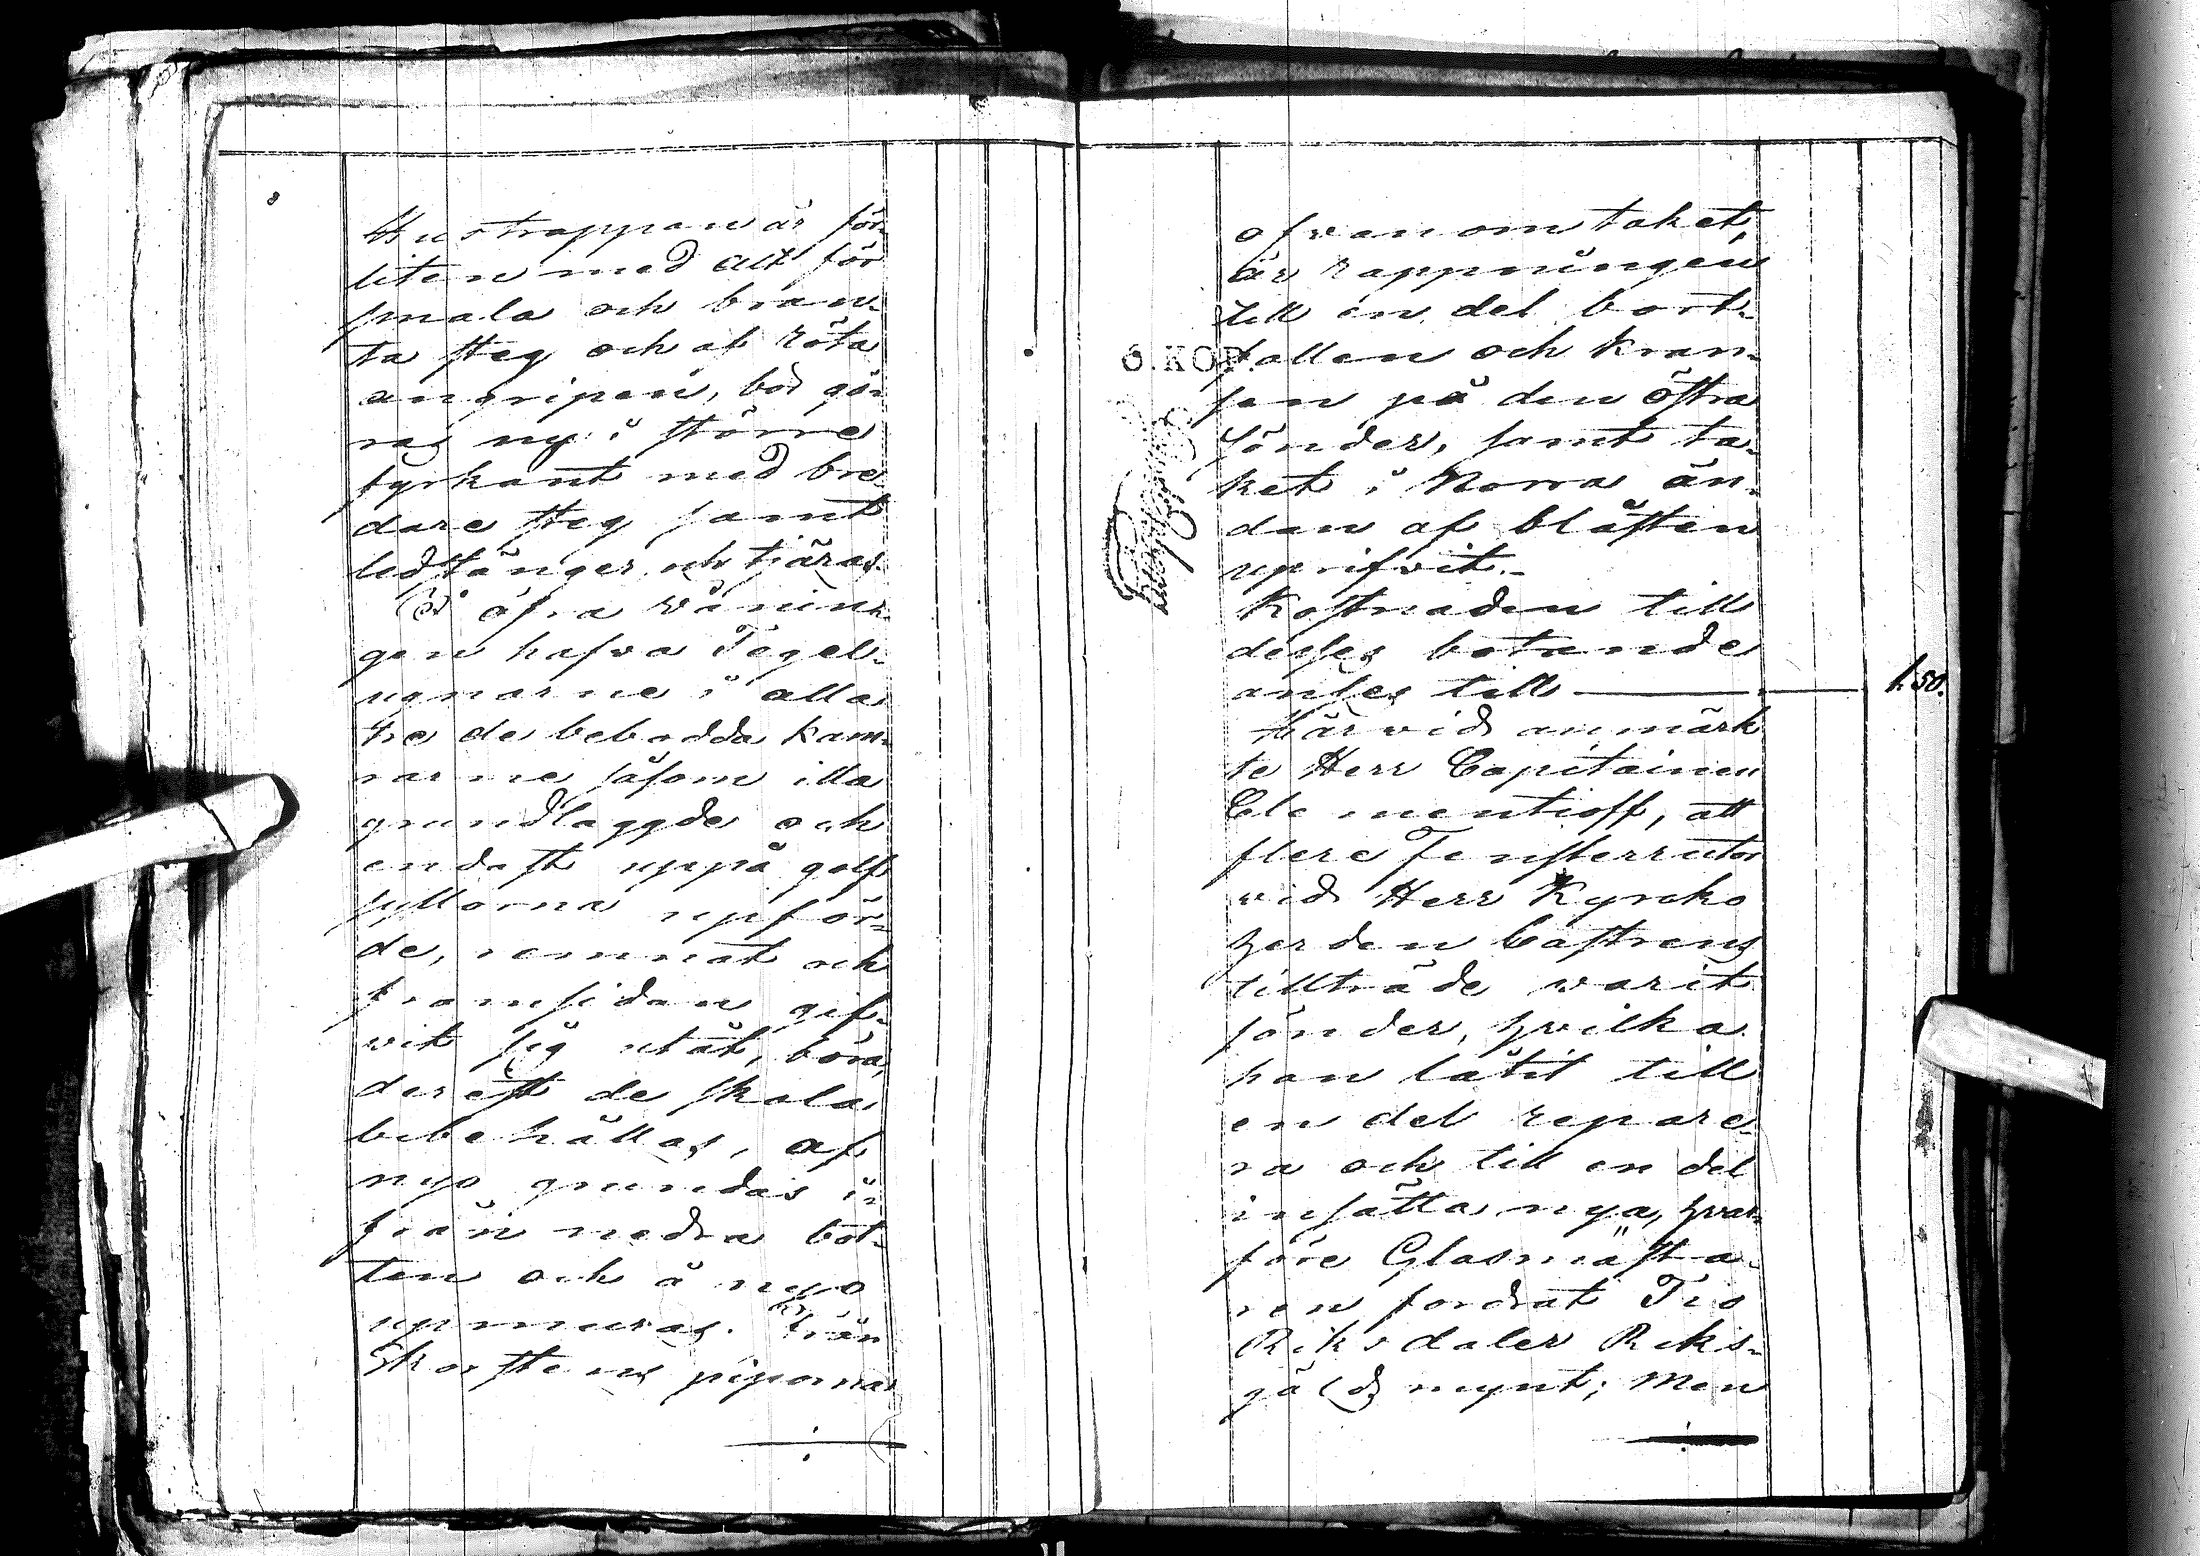 Hustrappan är för
liten med allt för
smala och bran-
ta steg och af röta
angripen, bör gö-
ras ny i större
fyrkant med bre-
dare steg samt
ledstänger och tjäras.
I öfra vånin-
gen hafva Tegel-
ugnarne i alla
tre de bebodda kam-
rarne såsom illa
grundlaggde och
endast uppå golf
syllorna upför-
de, remnat och
framsidan gif-
vit sig utåt, böra,
derest de skola
bibehållas, af
nyo grundas in
från nedra bot-
ten och å nyo
upmuras. Från
Skorstens piporna
ofvanom taket,
är rappningen
till en del bort-
fallen och kran-
sen på den östra
sönder, samt ta-
ket i Norra än-
dan af blåsten
uprifvit.
Kostnaden till
desses botande
anses till 1. 50.
Härvid anmärk
te Herr Capitainen
Clementieff, att
flere Fensterrutor
vid Herr Kyrcko
herden Castrens
tillträde warit
sönder, hvilka
han låtit till
en del repare-
ra och till en del
insätta nya, hvar-
före Glasmästa-
ren fordrat Tio
Riksdaler Riks-
gälds mynt; Men
6. KOP.